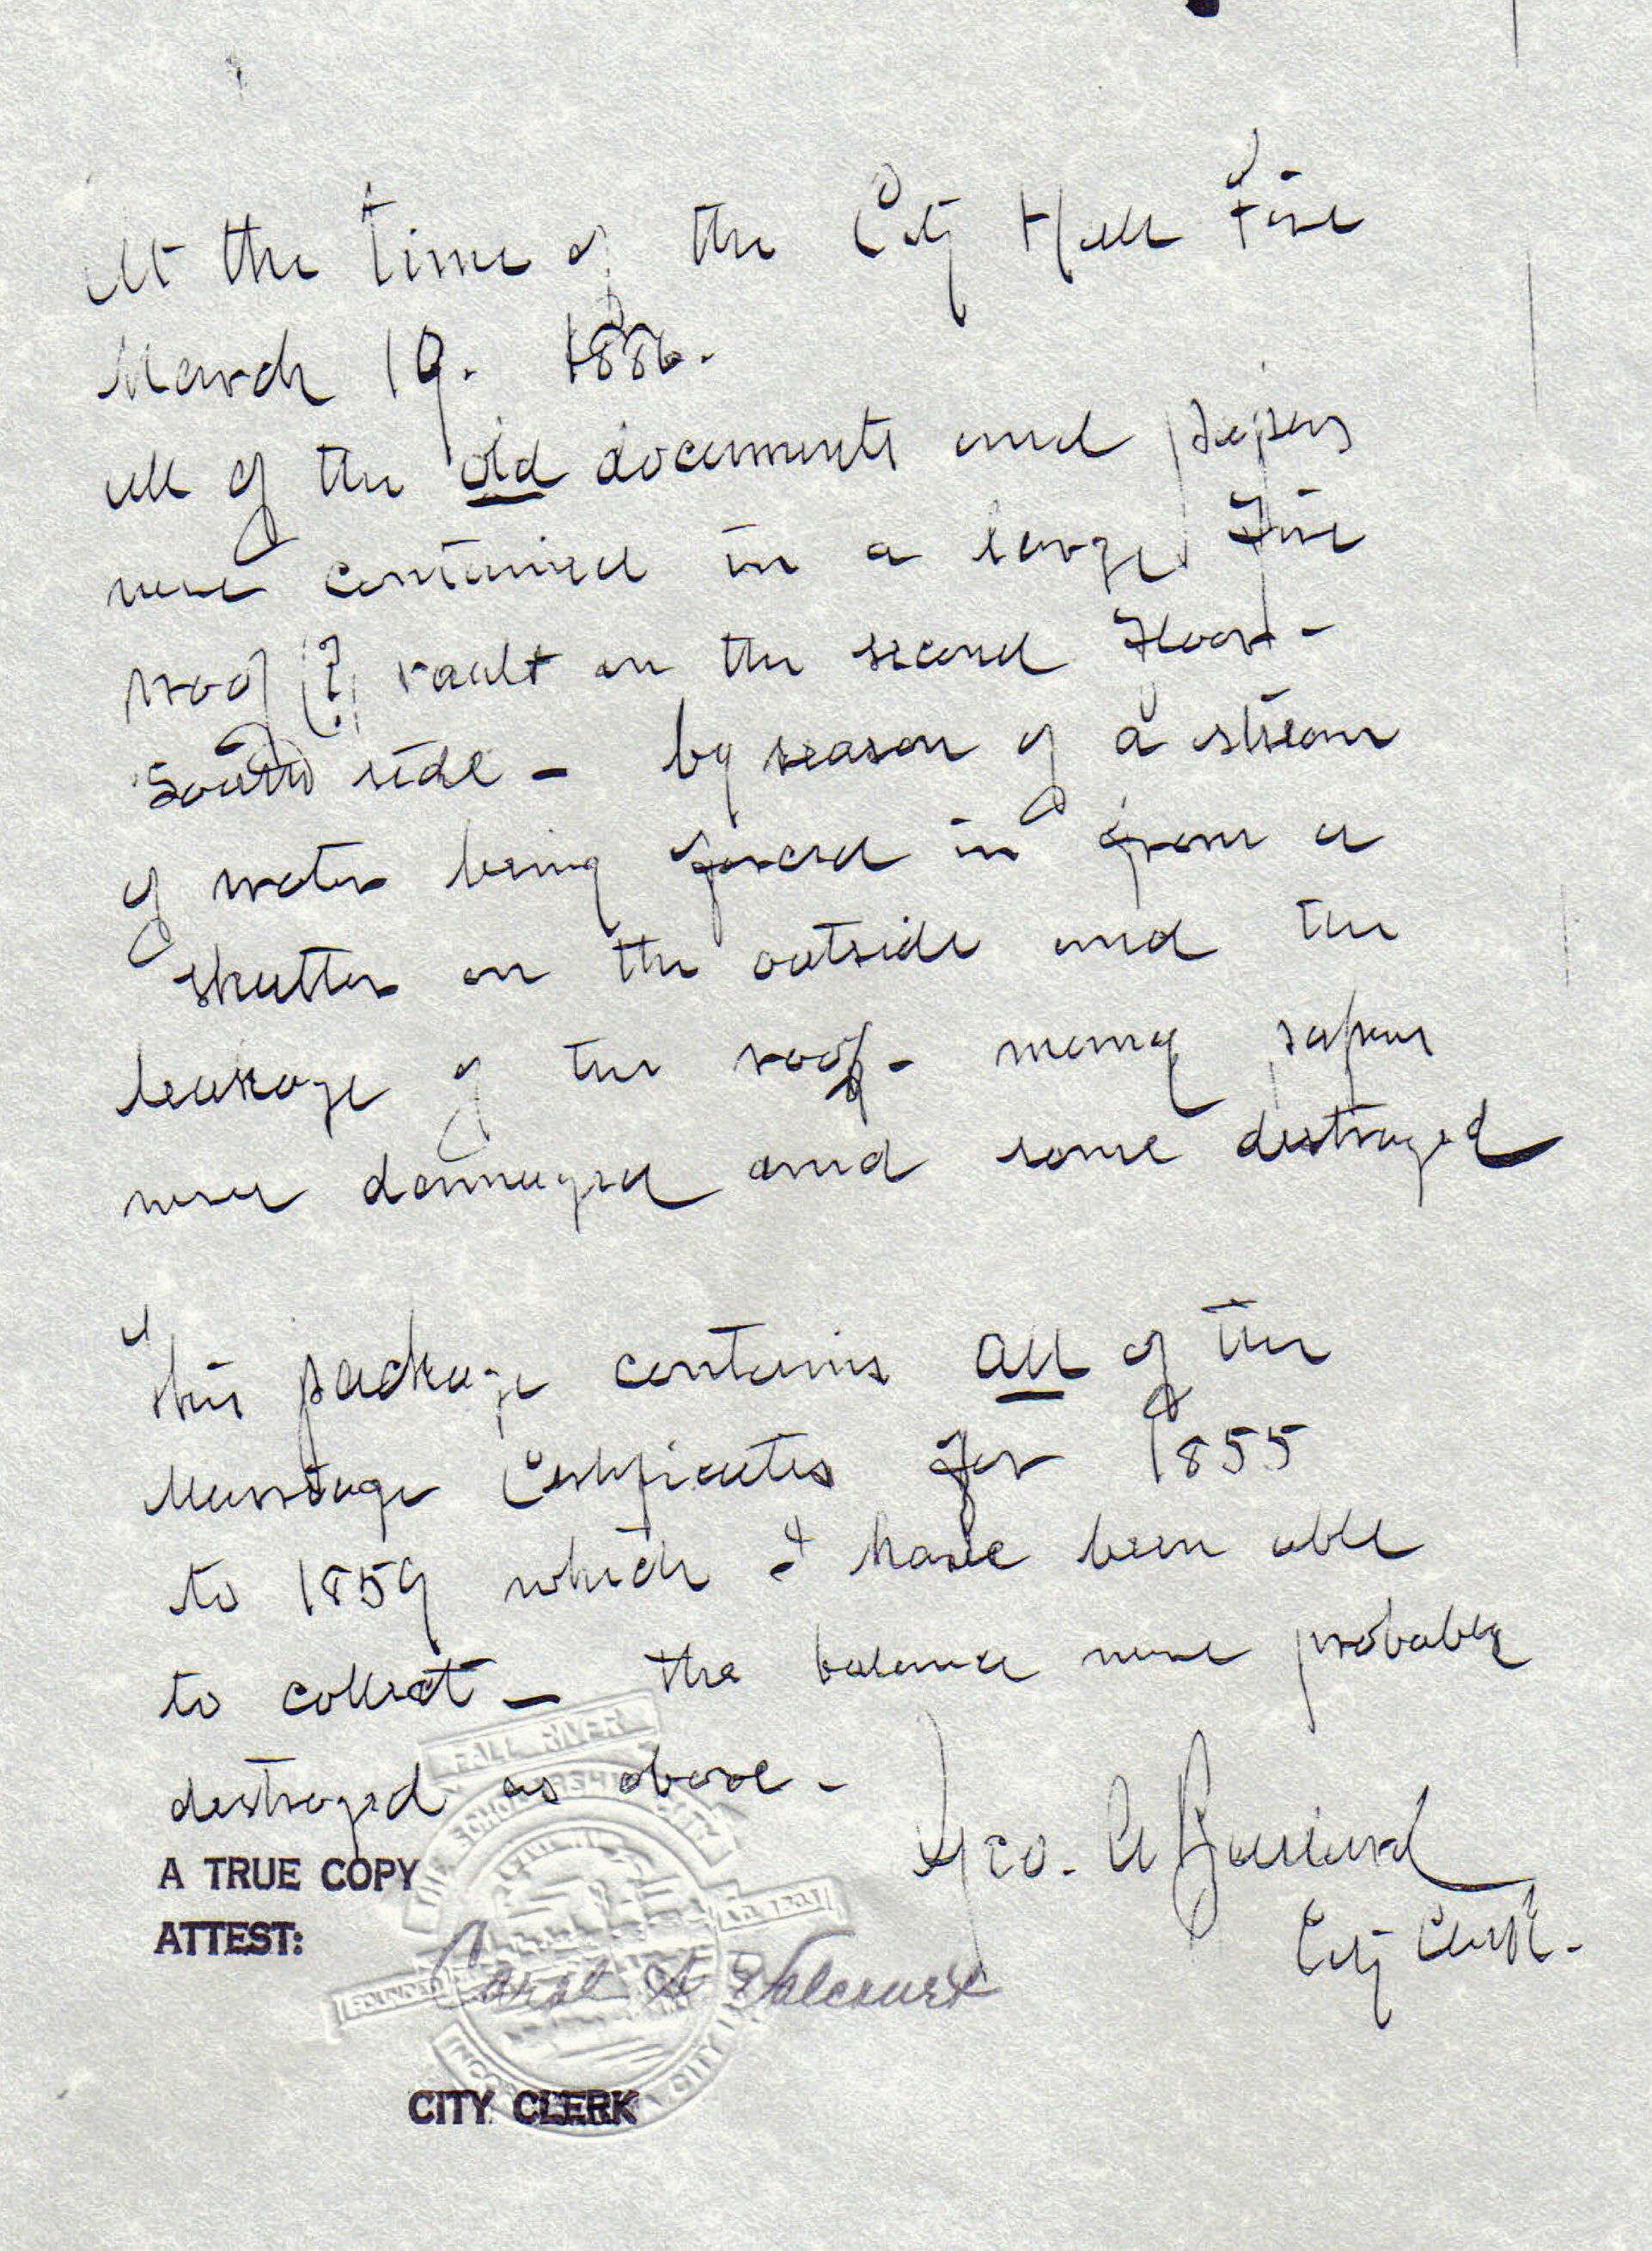 At the time of the City Hall Fire
March 19. 1886.
all of the old documents and papers
were contained in a large Fire
proof (?) vault on the second Floor -
South side - by reason of a stream
of water being forced in from a
shutter on the outside and the
leakage of the roof - many papers
were damaged and some destroyed
This package contains all of the
Marriage Certificates for 1855
to 1859 which I have been able
to collect - the balance were probably
destroyed as above -
Geo. A Ballard
City Clerk.
A TRUE COPY
ATTEST:
Carol A Valcourt
CITY CLERK
FALL RIVER
THE SCHOLARSHIP CITY
FOUNDED
CITY